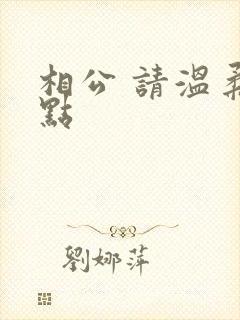 相公 請溫柔
點
劉娜萍